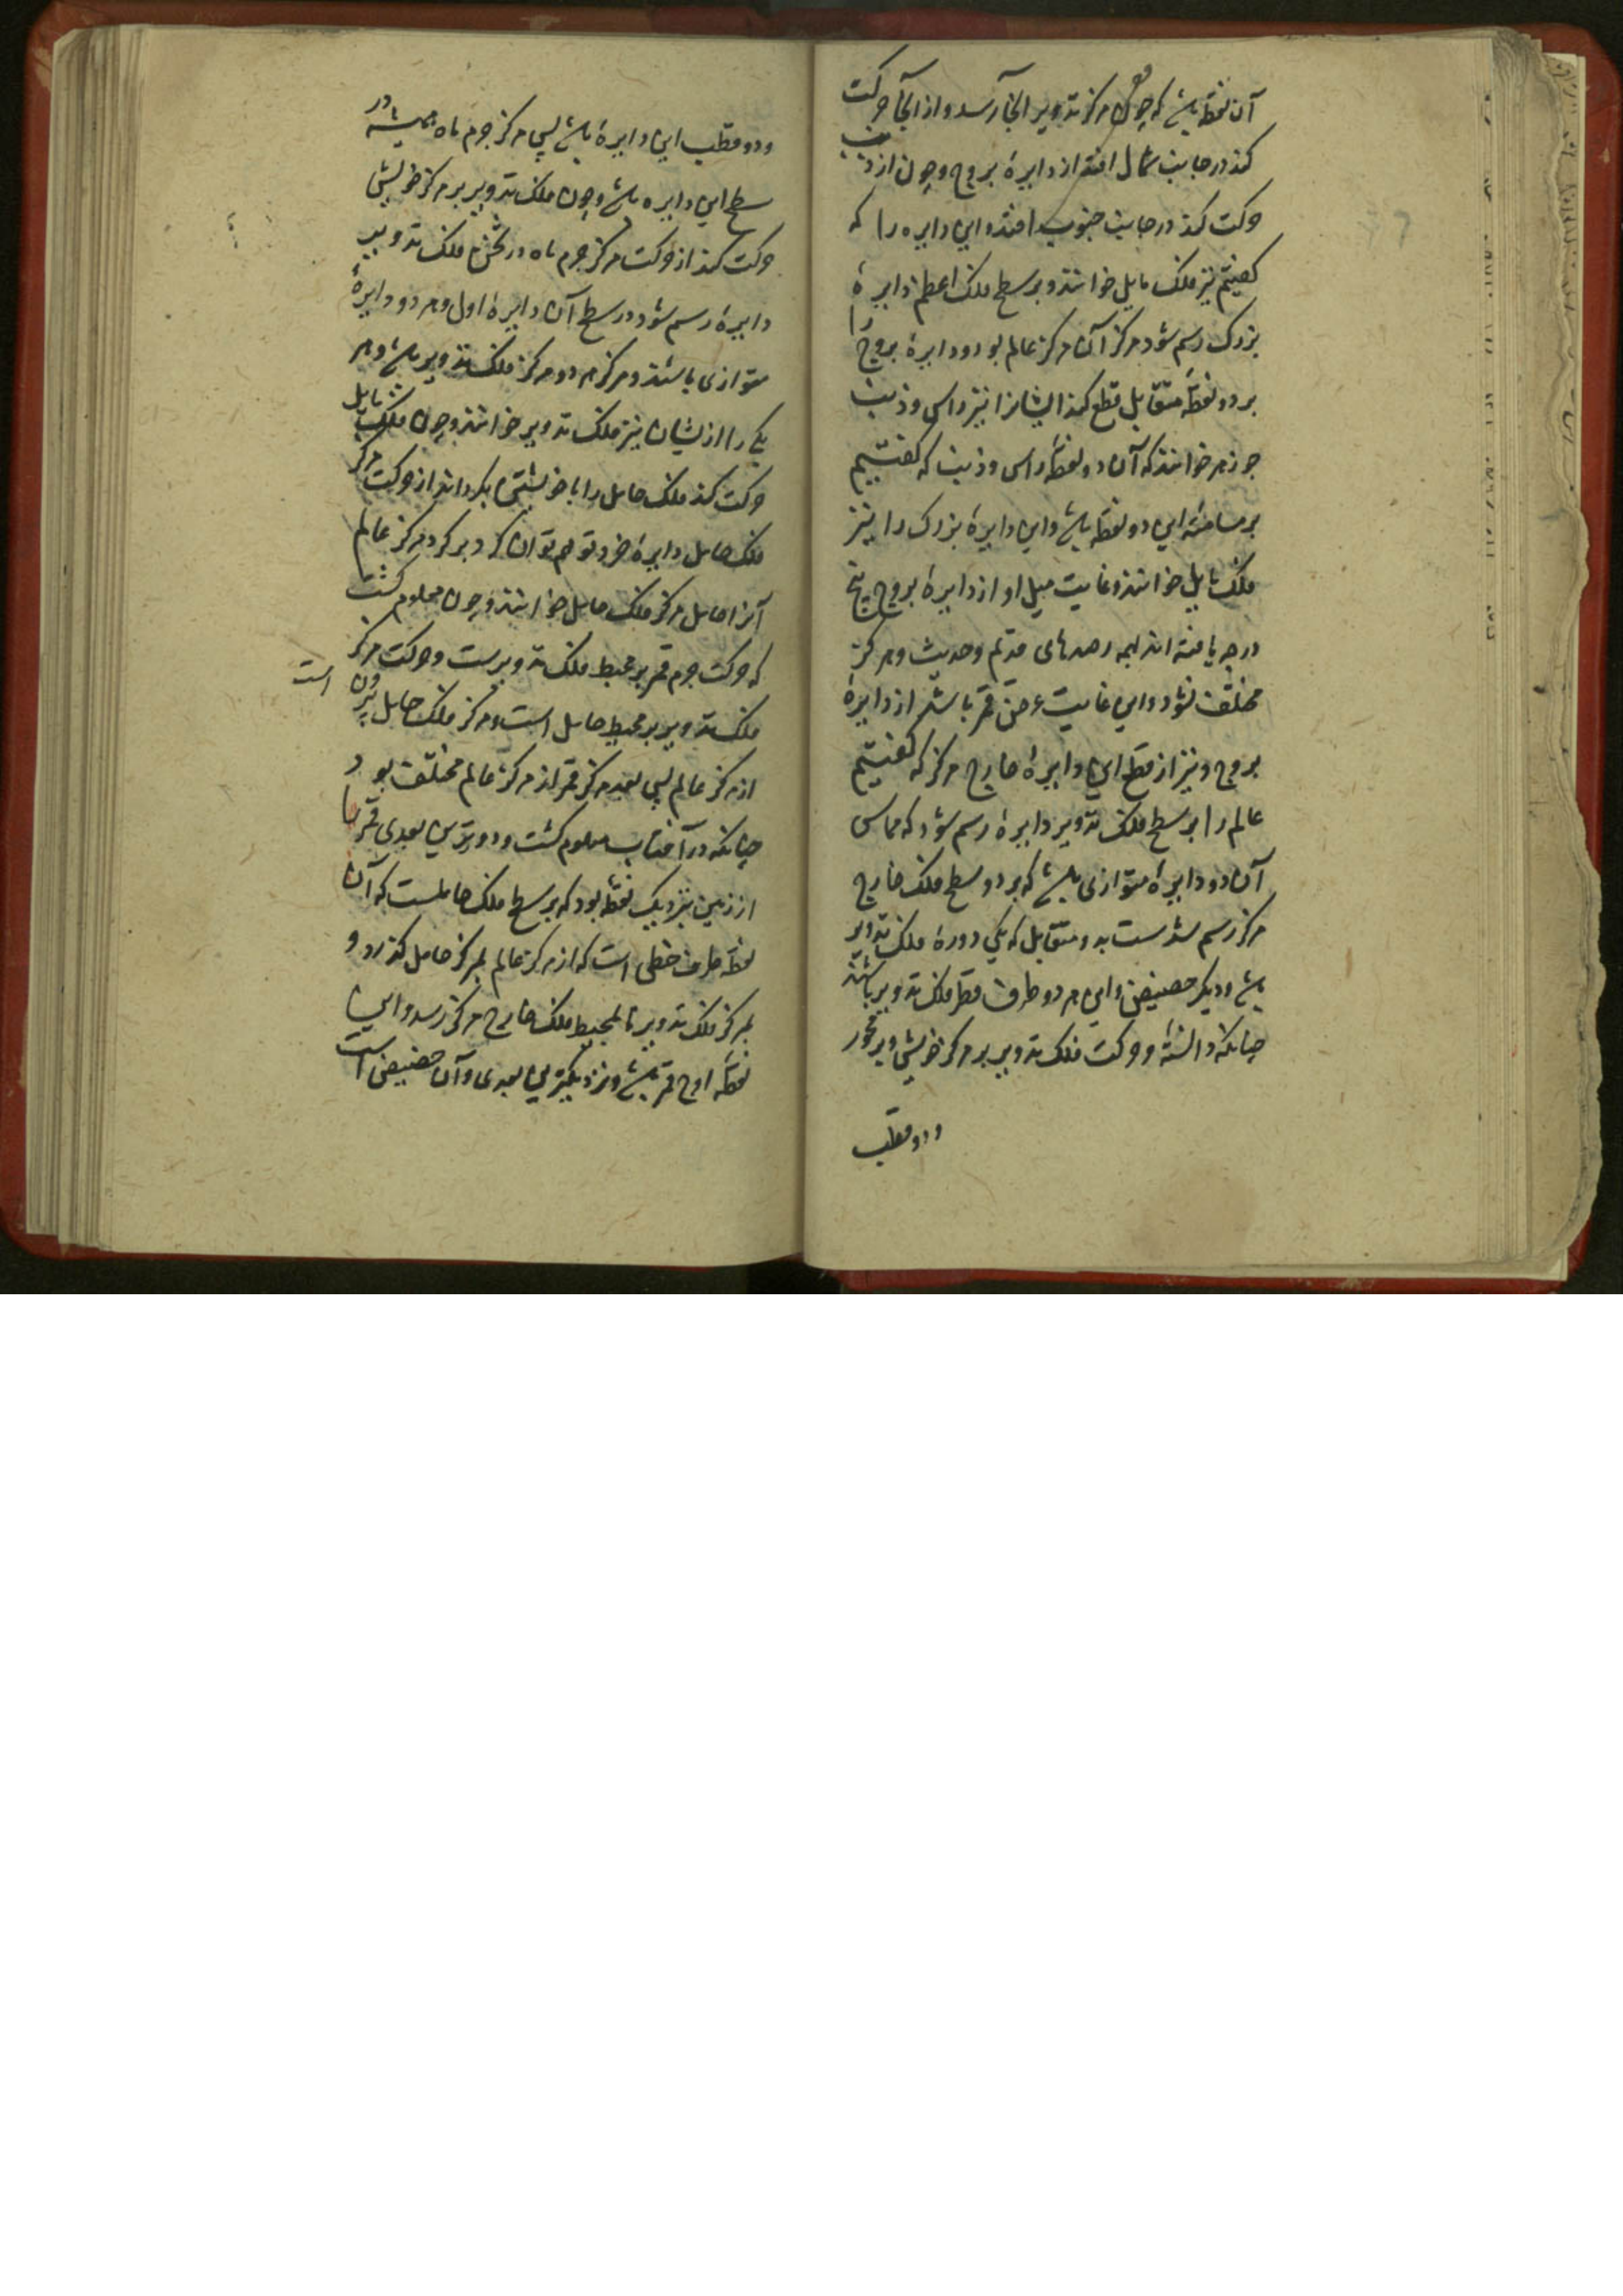 آن نقطه باشد که چون مرکز تدویر آنجا رسد و از آنجا حرکت
کند در جانب شمال افتد از دایرۀ بروج و چون از ذنب
حرکت کند در جانب جنوب افتد و این دایره را که
کفتیم نیز فلک مایل خوانند و بر سطح فلک اعظم دایرۀ
بزرک رسم شود مرکز آن مرکز عالم بود و دایرۀ بروج را
بر دو نقطۀ متقابل قطع کند ایشانرا نیز راس و ذنب
جوزهر خوانند که آن دو نقطۀ راس و ذنب که کفتیم
بر مسامتۀ این دو نقطه باشد و این دایرۀ بزرک را نیز
فلک مایل خوانند و غایت میل او از دایرۀ بروج پنج
درجه یافته اند بهمه رصدهای قدیم و حدیث و هرکز
مختلف نشود و این غایت عرض قمر باشد از دایرۀ
بروج و نیز از قطع این دایرۀ خارج مرکز که کفتیم
عالم را بر سطح فلک تدویر دایرۀ رسم شود که مماس
آن دو دایرۀ متوازی باشد که بر دو سطح فلک خارج
مرکز رسم شدست بدو متقابل که یکی دورۀ فلک تدویر
باشد و دیکر حضیض و این هر دو طرف قطر فلک تدویر باشند
چنانکه دانستۀ و حرکت فلک تدویر بر مرکز خویش و بر محور
و دو قطب
و دو قطب این دایرۀ باشد پس مرکز جرم ماه همیشه در
سطح این دایره باشد و چون فلک تدویر بر مرکز خویش
حرکت کند از حرکت مرکز جرم ماه در ثخن فلک تدویر
دایرۀ رسم شود در سطح آن دایرۀ اول و هر دو دایرۀ
متوازی باشند و مرکز هر دو مرکز فلک تدویر باشد و هر
یکی را از یشان نیز فلک تدویر خوانند و چون فلک مایل
حرکت کند فلک حامل را با خویشتن بکرداند از حرکت مرکز
فلک حامل دایرۀ خرد توهم توان کرد بر کرد مرکز عالم
آنرا حامل مرکز فلک حامل خوانند و چون معلوم کشت
که حرکت جرم قمر بر محیط فلک تدویرست و حرکت مرکز
فلک تدویر بر محیط حامل است و مرکز فلک حامل بیرون است
از مرکز عالم پس بعد مرکز قمر از مرکز عالم مختلف بود
چنانکه در آفتاب معلوم کشت و دورترین بعدی قمر را
از زمین نزدیک نقطه بود که بر سطح فلک حاملست که آن
نقطه طرف خطی است که از مرکز عالم بمرکز حامل کذرد و
بمرکز فلک تدویر تا بمحیط فلک خارج مرکز رسد و این
نقطه اوج قمر باشد و نزدیکترین بعدی و آن حضیض است